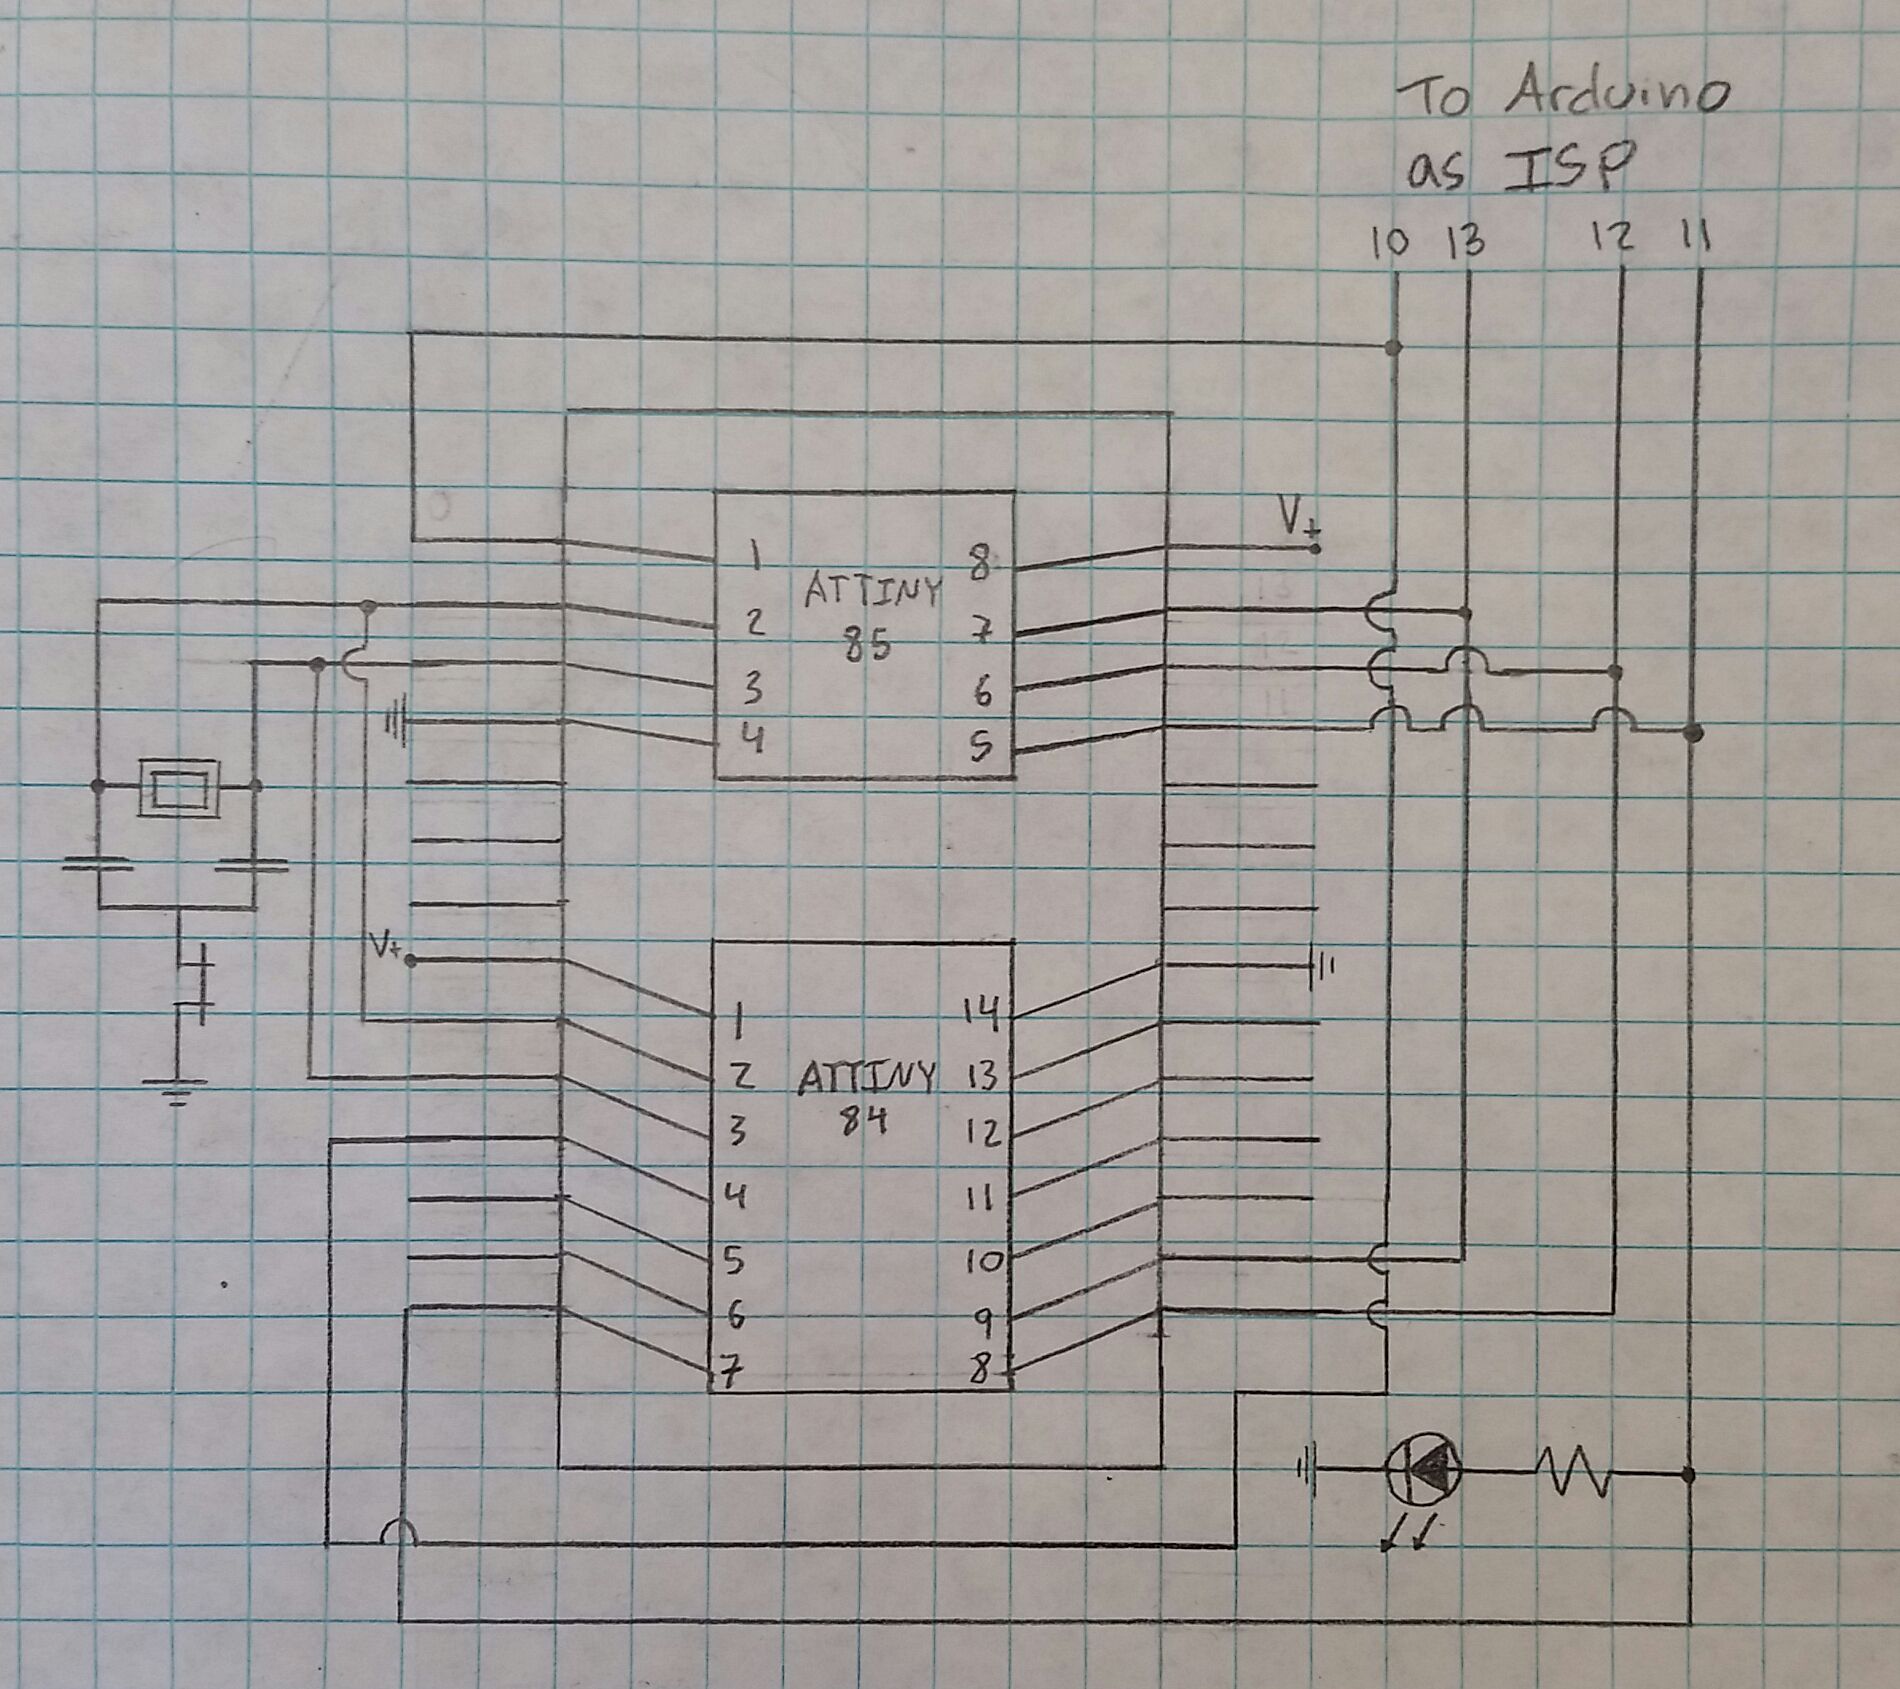 To Arduino
as ISP
10 13 12 11
V+
1 8
ATTINY
2 7
85
3 6
4 5
V+
1 14
2 ATTINY 13
84
3 12
4 11
5 10
6 9
7 8